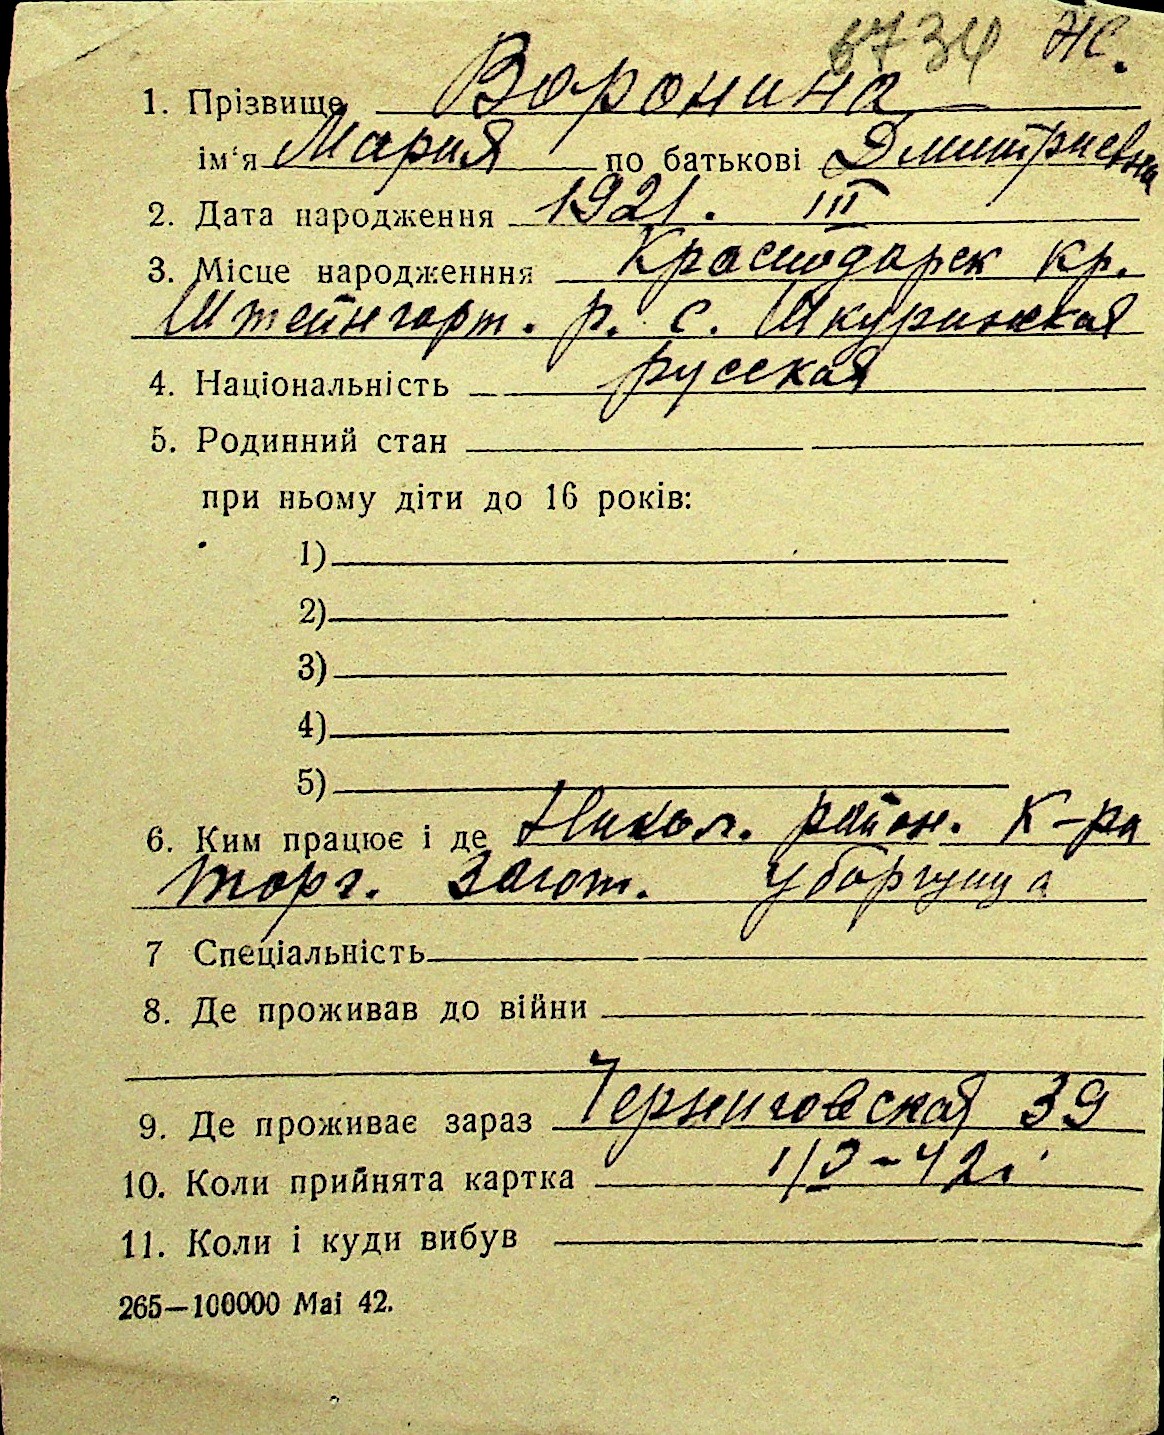 6734 Ж.
1. Прізвище Воронина
ім'я Мария по батькові Дмитриевна
2. Дата народження 1921. III
3. Місце народженння Краснодарск кр.
Штейнгарт. р. с. Шкуринская
4. Національність русская
5. Родинний стан
при ньому діти до 16 років:
1)
2)
3)
4)
5)
6. Ким працює і де Никол. район. К-ра
торг. загот. уборщица
7 Спеціальність
8. Де проживав до війни
9. Де проживає зараз Черниговская 39
10. Коли прийнята картка
11. Коли і куди вибув
265—100000 Mai 42.